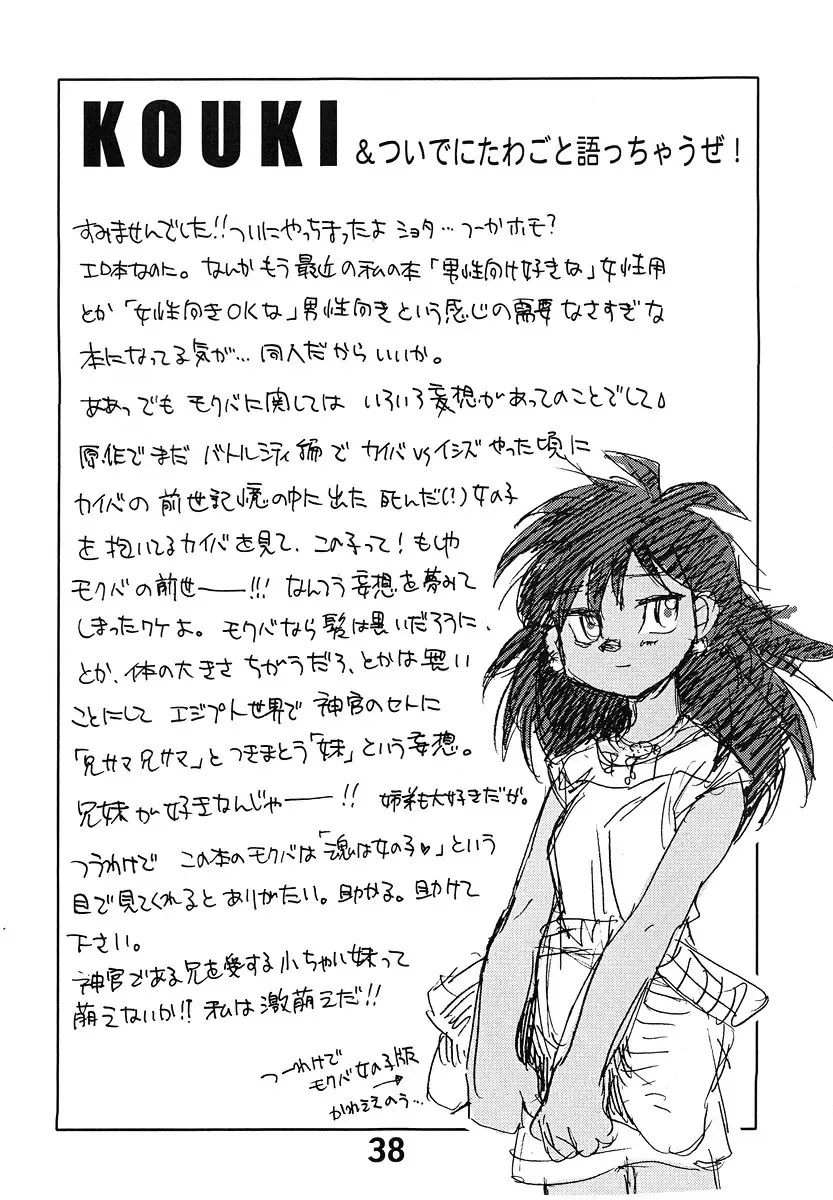 KOUKI &ついでにたわごと語っちゃうぜ!
すみませんでした!!ついにやっちまったよ ショタ…つーかホモ?
エロ本なのに。なんかもう最近の私の本「男性向け好きな」女性用
とか「女性向きOKな」男性向きという感じの需要なさすぎな
本になってる気が…同人だからいいか。
ああっでも モクバに関しては いろいろ妄想があってのことでして。
原作でまだ バトルシティ編で カイバvsイシズやった頃に
カイバの前世記憶の中に出た 死んだ(!)女の子
を抱いてるカイバを見て、この子って!もしや
モクバの前世――!!! なんつう妄想を夢みて
しまったワケよ。モクバなら髪は黒いだろうに、
とか、体の大きさちがうだろ、とかは悪い
ことにして エジプト世界で 神官のセトに
「兄サマ兄サマ」とつきまとう「妹」という妄想。
兄妹が好きなんじゃ――!! 姉弟も大好きだが。
つうわけで この本のモクバは「魂は女の子♥」という
目で見てくれると ありがたい。助かる。助けて
下さい。
神官である兄を愛する小ちゃい妹って
萌えないか!? 私は激萌えだ!!
つーわけで
モクバ女の子版
かわええのう…
38